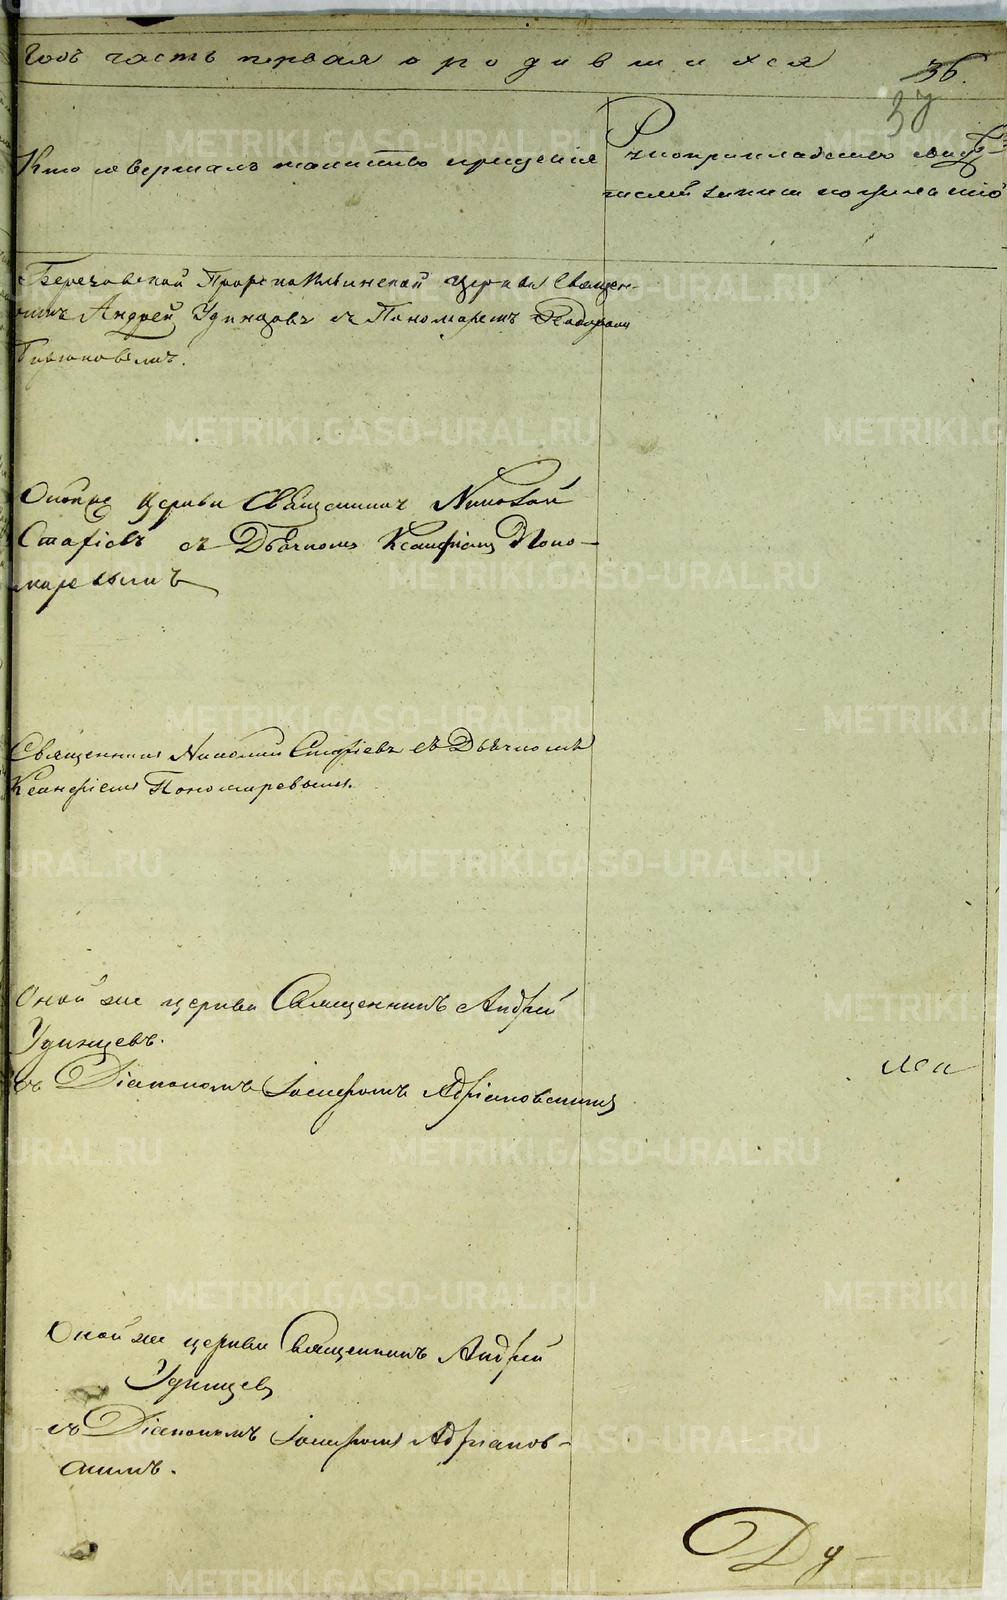 Годъ часть первая о родившихся 36.
37
Кто совершалъ таинство крещенія
Рукоприкладство свидѣ-
телей записи по желанію
Березовской Пророкоильинской церкви Священ-
никъ Андрей Удинцовъ съ Пономаремъ Федоромъ
Оной же церкви Священникъ Николай
Стафіевъ съ Дьячкомъ Ксанфіемъ Поно-
маревымъ
Священникъ Николай Стафіевъ съ Дьячкомъ
Ксанфіемъ Пономаревымъ.
Оной же церкви Священникъ Андрей
Удинцевъ.
съ Діакономъ Іосифомъ Адріановскимъ
Оной же церкви Священникъ Андрей
Удинцевъ
съ Діакономъ Іосифомъ Адріанов-
скимъ.
Ду-
METRIKI.GASO-URAL.RU